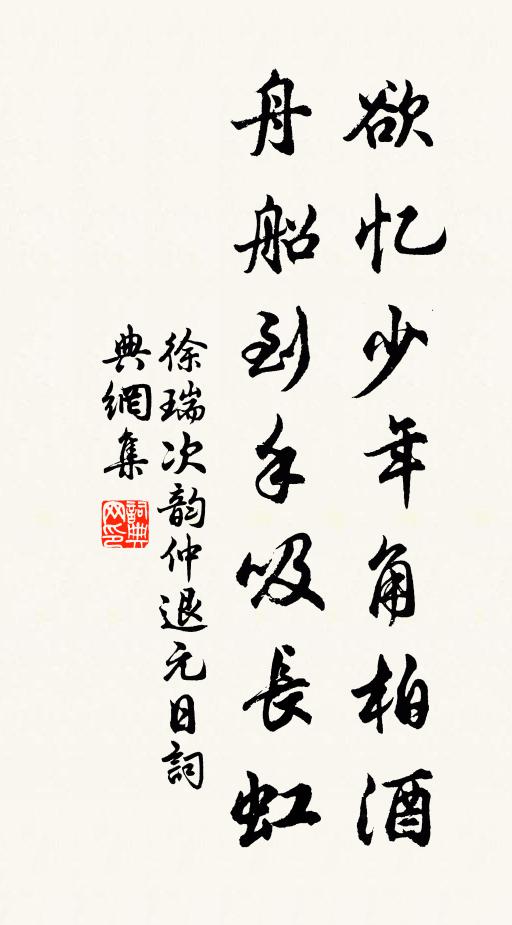 欲忆少年角柏酒
舟船到手吸長虹
徐瑞次韵仲退元日詞
典網集
詞典
网印